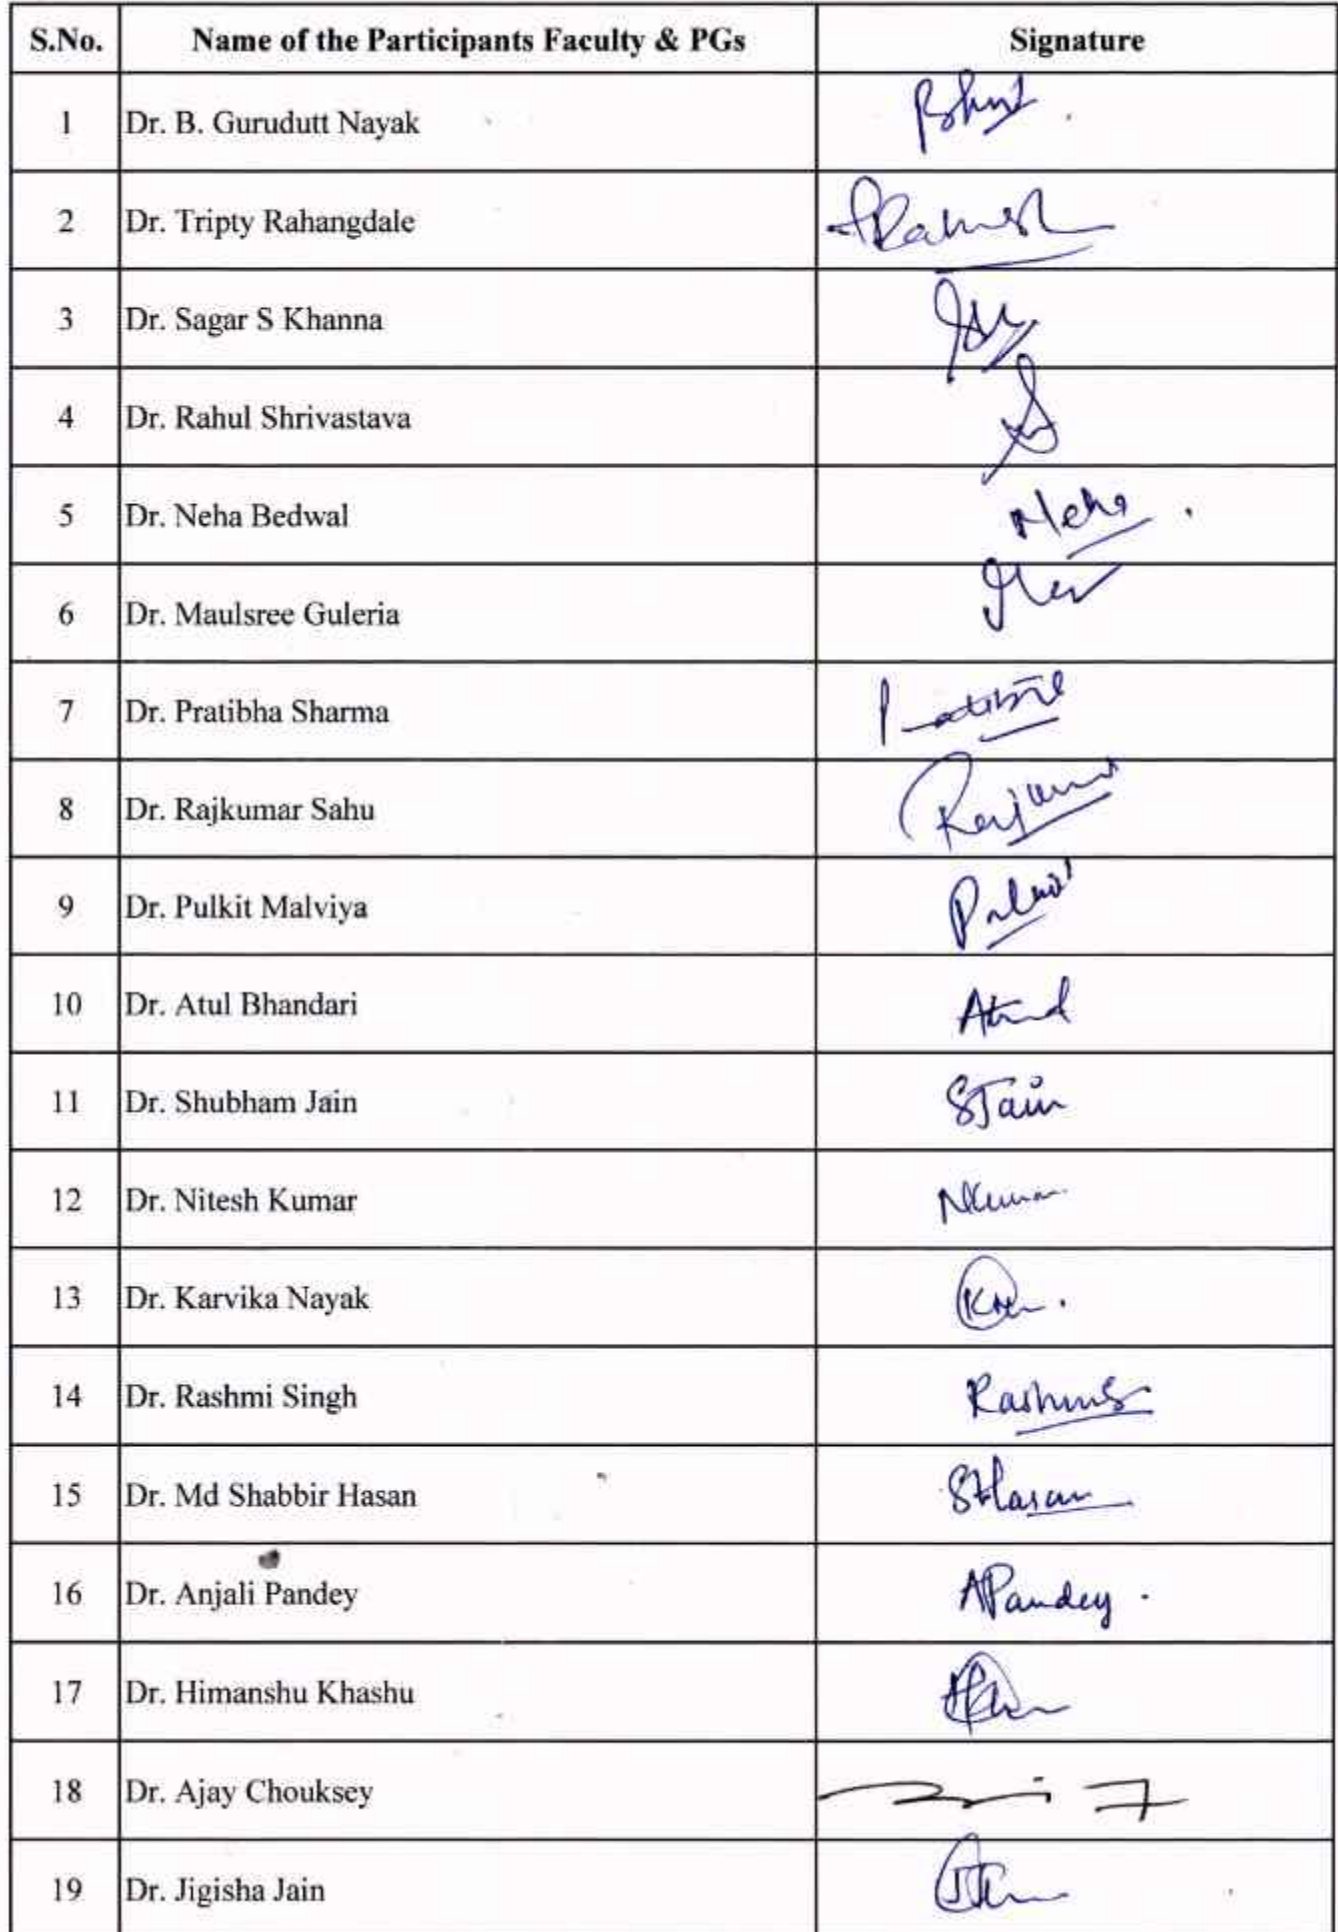 S.No. Name of the Participants Faculty & PGs Signature
1 Dr. B. Gurudutt Nayak
2 Dr. Tripty Rahangdale
3 Dr. Sagar S Khanna
4 Dr. Rahul Shrivastava
5 Dr. Neha Bedwal Neha
6 Dr. Maulsree Guleria
7 Dr. Pratibha Sharma
8 Dr. Rajkumar Sahu
9 Dr. Pulkit Malviya
10 Dr. Atul Bhandari Atul
11 Dr. Shubham Jain SJain
12 Dr. Nitesh Kumar NKumar
13 Dr. Karvika Nayak
14 Dr. Rashmi Singh
15 Dr. Md Shabbir Hasan SHasan
16 Dr. Anjali Pandey APandey
17 Dr. Himanshu Khashu
18 Dr. Ajay Chouksey
19 Dr. Jigisha Jain